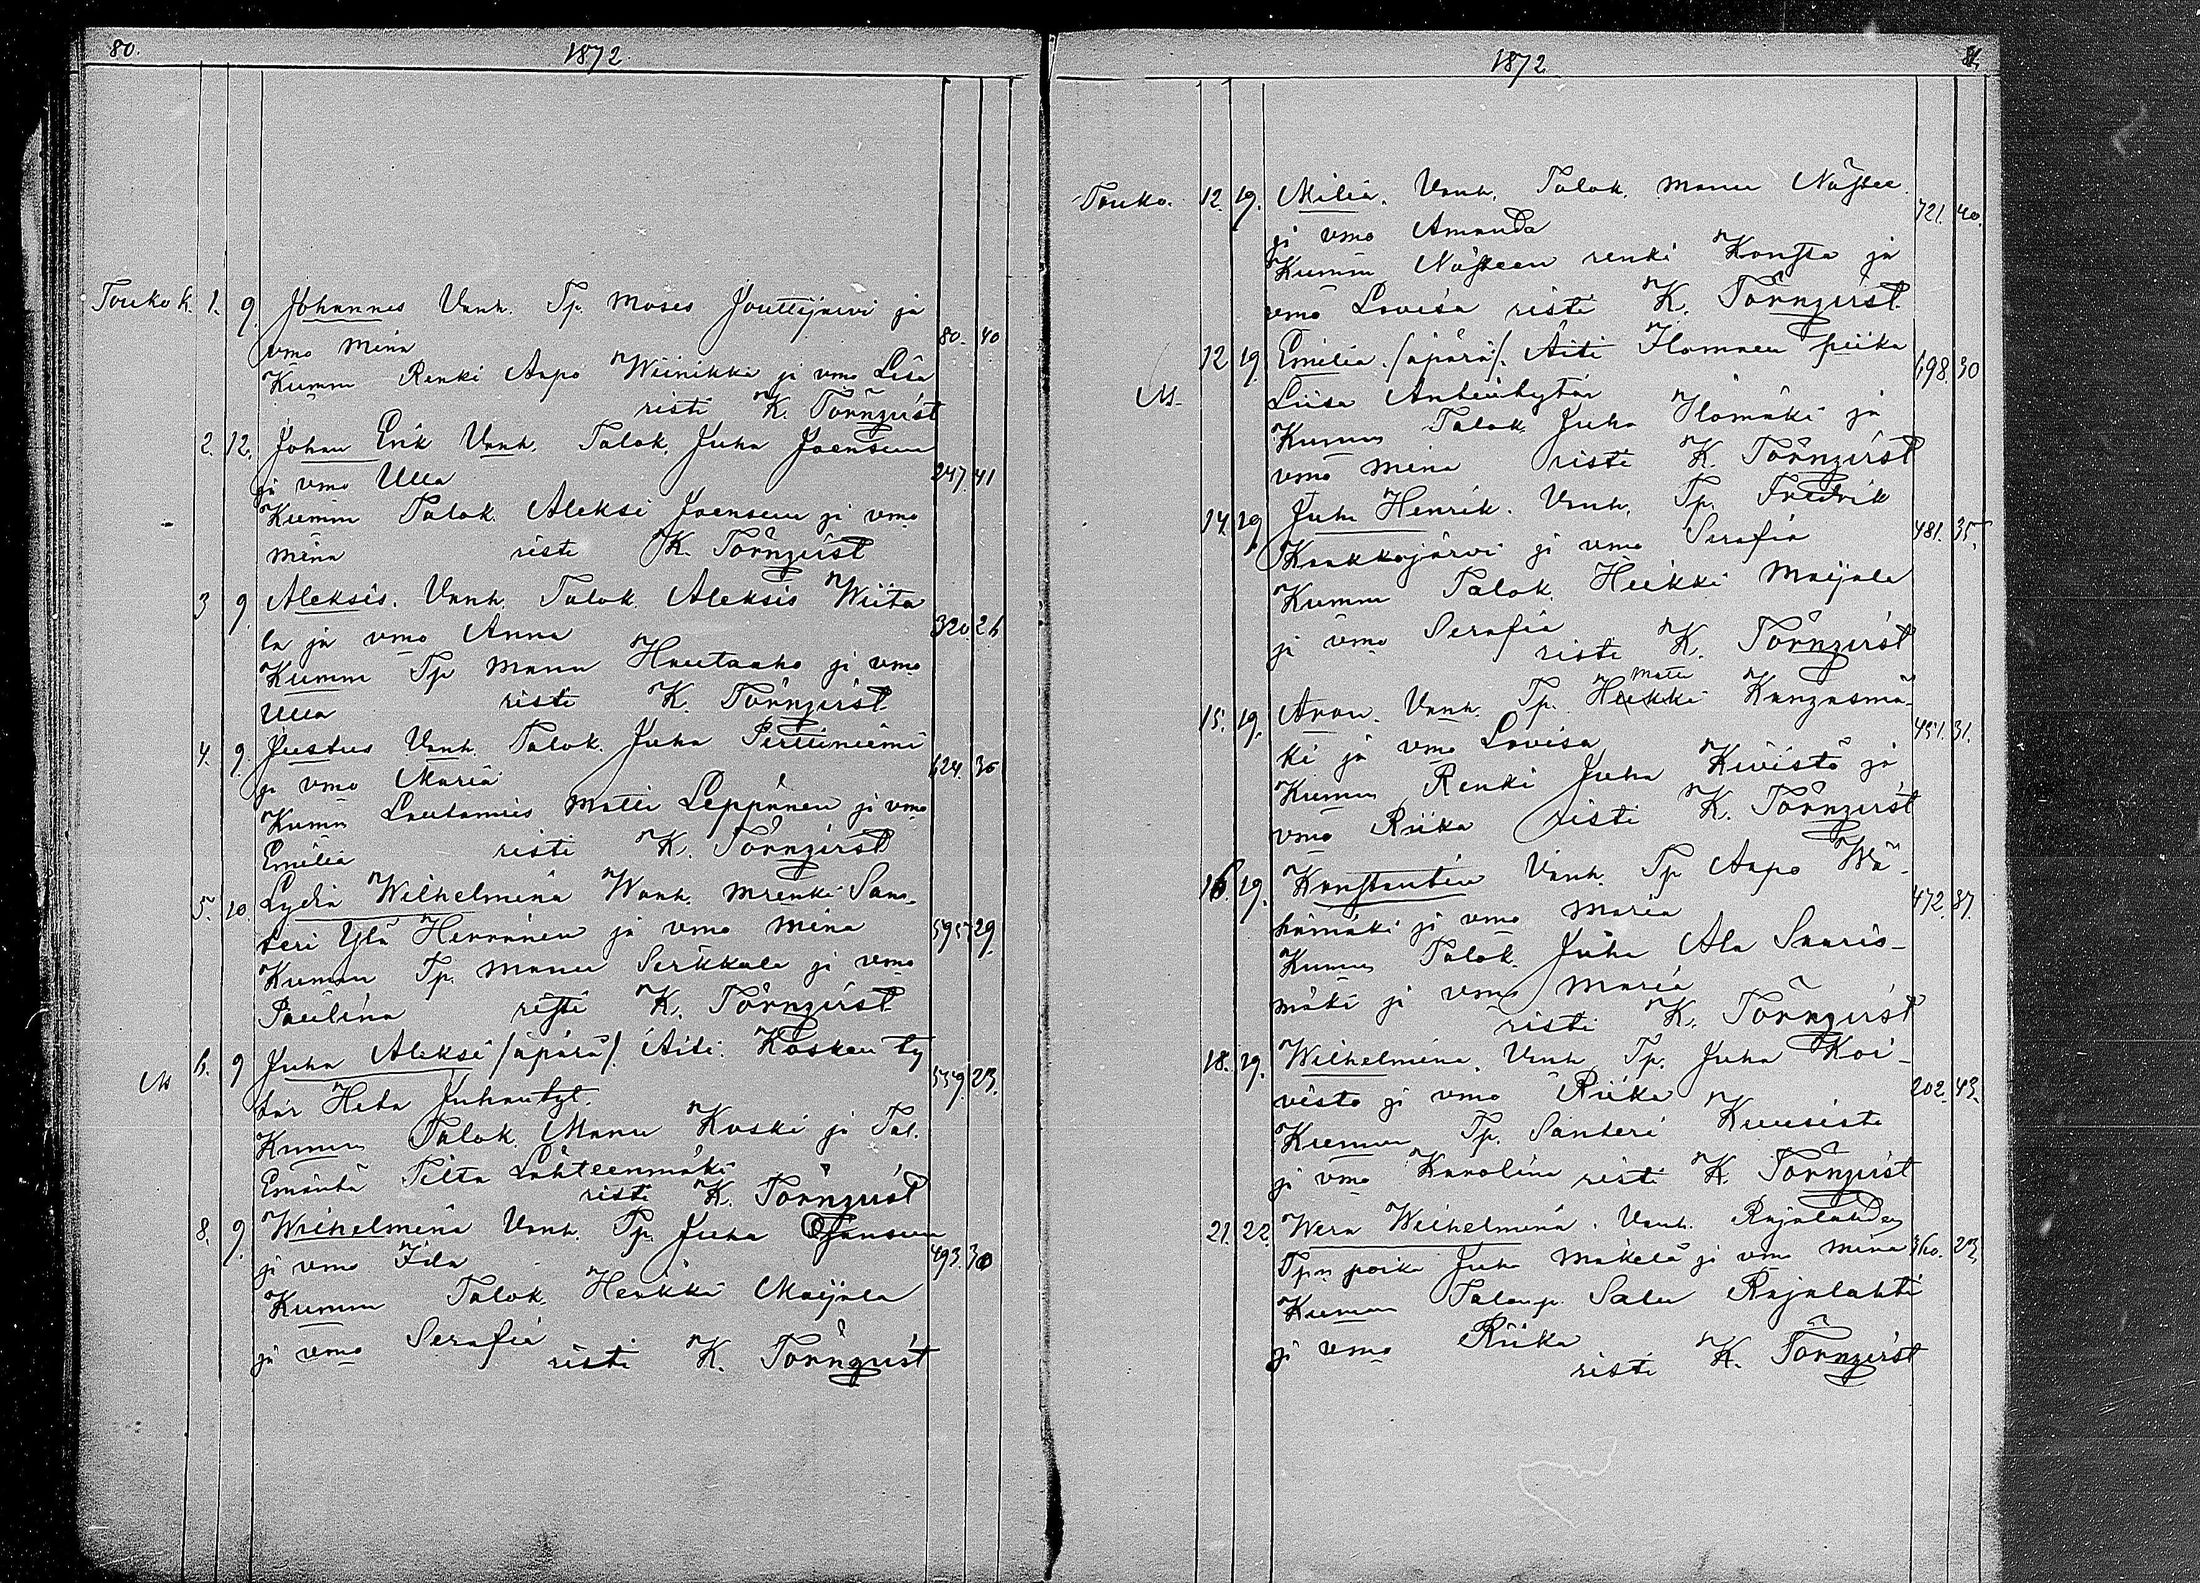 80. 1872.
Touko k. 1. 9. Johannes Vanh. Tp. Moses Jouttijärvi ja
vmo Mina 80. 40
Kumm Renki Aapo Wiinikka ja vmo Lisa
risti K. Törnqvist
2. 12. Johan Erik Vanh. Talok. Juha Joensuu
ja vmo Ulla 247. 41
Kumm Talok. Aleksi Joensuu ja vmo
Mina risti K. Törnqvist
3 9. Aleksis. Vanh. Talok. Aleksis Wiita
la ja vmo Anna 320. 26
Kumm Tp Manu Hautaaho ja vmo
Ulla risti K. Törnqvist
4. 9. Justus Vanh. Talok. Juha Perttuniemi
ja vmo Maria 624. 36
Kumm Lautamies Matti Leppänen ja vmo
Emilia risti K. Törnqvist
5. 10. Lydia Wilhelmina Wanh. Mrenki San-
teri Ylä Herranen ja vmo Mina 595. 29.
Kumm Tp. Manu Serkkala ja vmo
Paulina risti K. Törnqvist
6. 9 Juha Aleksi /äpärä/. Äiti. Kosken ty
tär Heta Juhantyt. 559. 23.
Kumm Talok. Manu Koski ja Tal.
Emäntä Tilta Lähteenmäki
risti K. Törnqvist
8. 9. Wilhelmina Vanh. Tp. Juha Ojansuu
ja vmo Fila 493. 30
Kumm Talok. Heikki Maijala
ja vmo Serafia
risti K. Törnqvist
1872 81.
Touko. 12. 19. Milia. Vanh. Talok. Manu Nässee
ja vmo Amanda 721. 40.
Kumm Nässeen renki Konsta ja
vmo Lovisa risti K. Törnqvist
12 19. Emilia. /äpärä/. Äiti Ilomäen piika
Liisa Antintytär 698. 30
Kumm Talok. Juha Ilomäki ja
vmo Mina risti K. Törnqvist
14. 19. Juha Henrik. Vanh. Tp. Fredrik
Kaakkojärvi ja vmo Serafia 481. 35.
Kumm Talok. Heikki Maijala
ja vmo Serafia
risti K. Törnqvist
Matti
15. 19. Aron. Vanh. Tp. Heikki Kangasmä-
ki ja vmo Lovisa 451. 31.
Kumm Renki Juha Kivistö ja
vmo Riika risti K. Törnqvist
16. 19. Konstantin Vanh. Tp Aapo Wä-
hämäki ja vmo Maria 472. 37.
Kumm Talok. Juha Ala Saaris-
mäki ja vmo Maria
risti K. Törnqvist
18. 19. Wilhelmina. Vanh. Tp. Juha Koi-
visto ja vmo Riika 202. 43.
Kumm Tp. Santeri Kuusisto
ja vmo Karolina risti K. Törnqvist
21. 22. Wera Wilhelmina. Vanh. Rajalahden
Tp:n poika Juha Mäkelä ja vmo Mina 360. 23.
Kumm Talonp. Salu Rajalahti
ja vmo Riika
risti K. Törnqvist